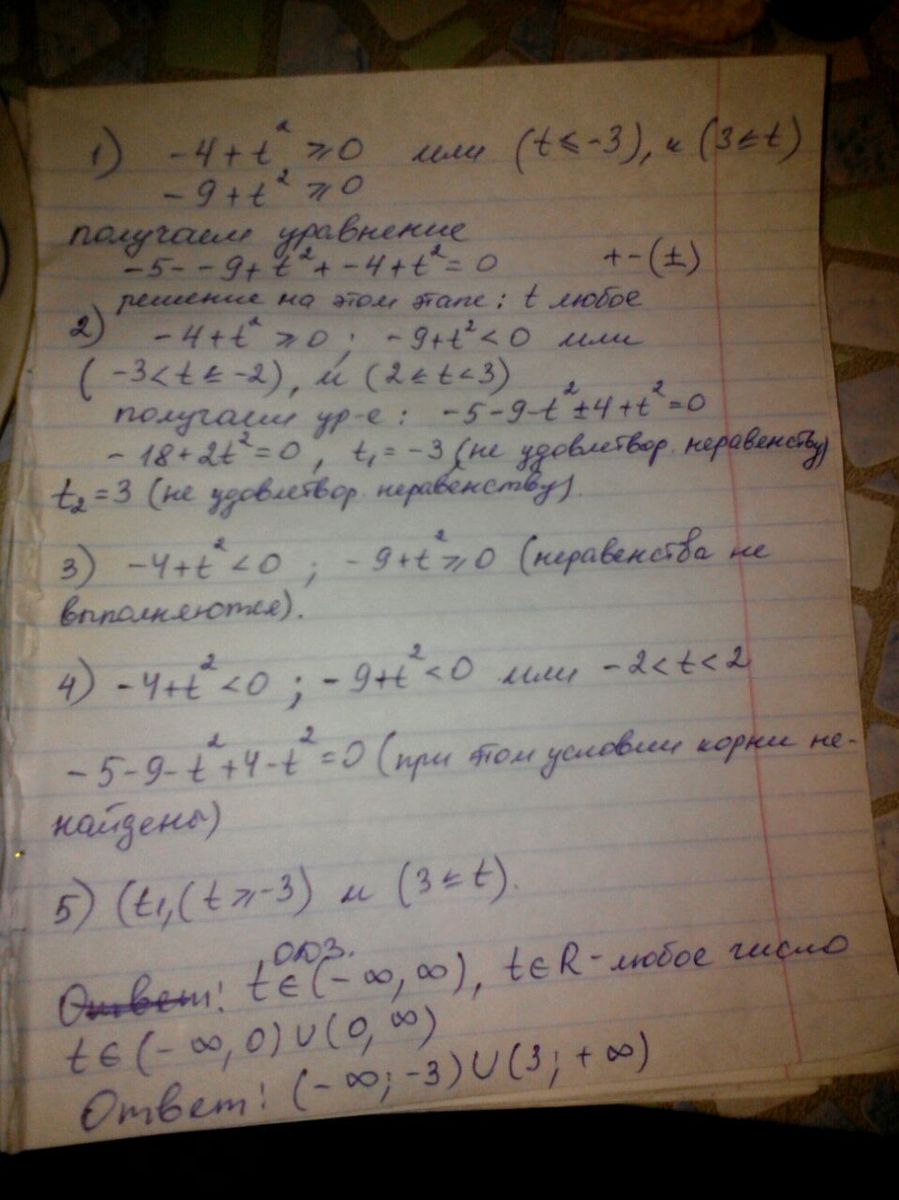 1) -4+t² ≥0 или (t≤-3), и (3≤t)
-9+t² ≥0
получаем уравнение
-5--9+t²+-4+t²=0 +-(±)
решение на этом этапе: t любое
2) -4+t² ≥0; -9+t²<0 или
(-3<t≤-2), и (2≤t<3)
получаем ур-е: -5-9-t²±4+t²=0
-18+2t²=0, t₁=-3 (не удовлетвор. неравенству)
t₂=3 (не удовлетвор. неравенству).
3) -4+t²<0; -9+t²≥0 (неравенства не
выполняются).
4) -4+t²<0; -9+t²<0 или -2<t<2
-5-9-t²+4-t²=0 (при том условии корни не-
найдены)
5) (t₁,(t≥-3) и (3≤t).
одз.
Ответ: t∈(-∞,∞), t∈R-любое число
t∈(-∞,0)∪(0,∞)
Ответ: (-∞;-3)∪(3;+∞)